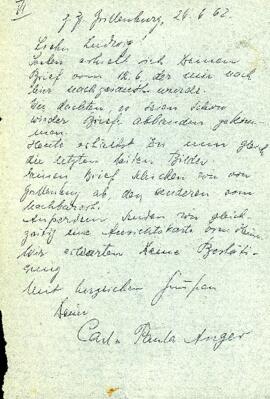 z. Z. Grillenburg, 26.6.62.
Lieber Ludwig,
Soeben erhielt ich Deinen
Brief vom 18.6., der mir nach
hier nachgesandt wurde.
Wir dachten, es seien schon
wieder Briefe abhanden gekom-
men.
Heute erhieltst Du nun gleich
die letzten beiden Bilder.
einen Brief schicken wir von
Grillenburg ab, den anderen vom
Nachbarort.
Außerdem senden wir gleich-
zeitig eine Ansichtskarte vom
Wir erwarten Deine Bestäti-
gung
Mit herzlichen Grüßen
Deine
Carl u Paula Anger